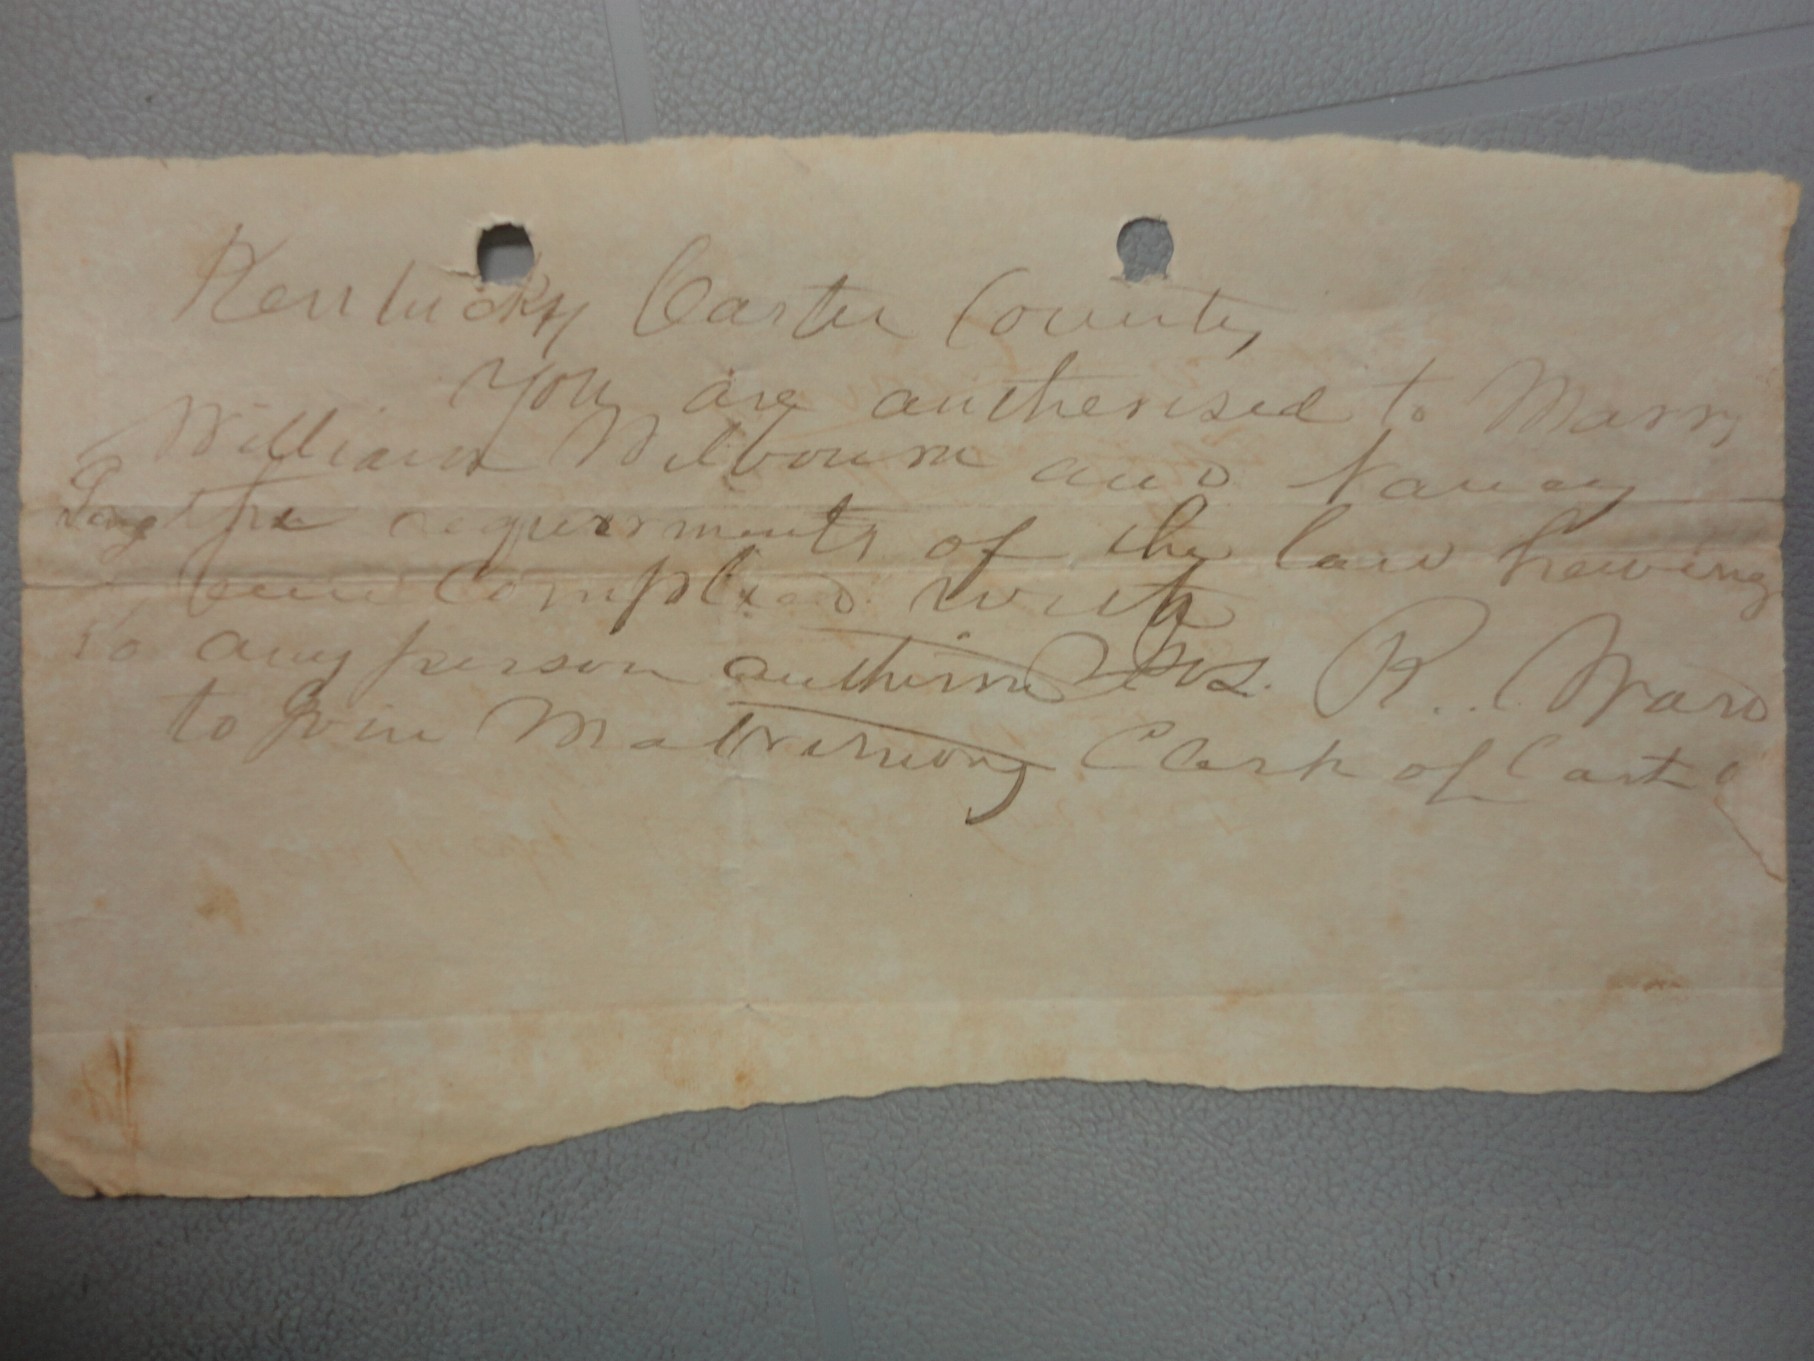 Kentucky Carter County
You are autherised to Marry
William Wilbourn and Nancy
the requirments of the law having
been complied with
To any person R. Ward
to Join Matrimony Clerk of Carter